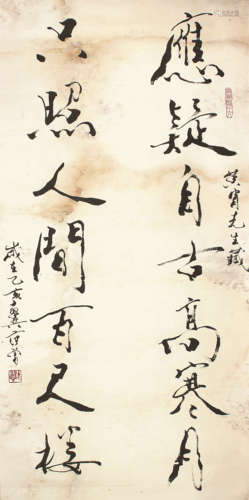 應疑自古高寒月
先生
只照人間百尺樓
歲在乙亥冀范曾